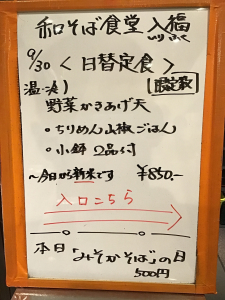 和そば食堂 入福
9/30 <日替定食>
温・冷) 限定数
野菜かきあげ天
・ちりめん山椒ごはん
・小鉢 2品付
〜今日から新米です ¥850.-
入口こちら
本日「みそかそば」の日
500円